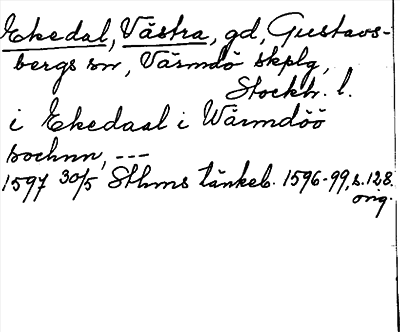 Ekedal, Västra, gd, Gustavs-
bergs sn, Värmdö skplg,
Stockh. l.
i Ekedaal i Wärmdöö
sochnn, ---
1597 30/5 Sthms tänkeb. 1596-99, s. 128.
orig.